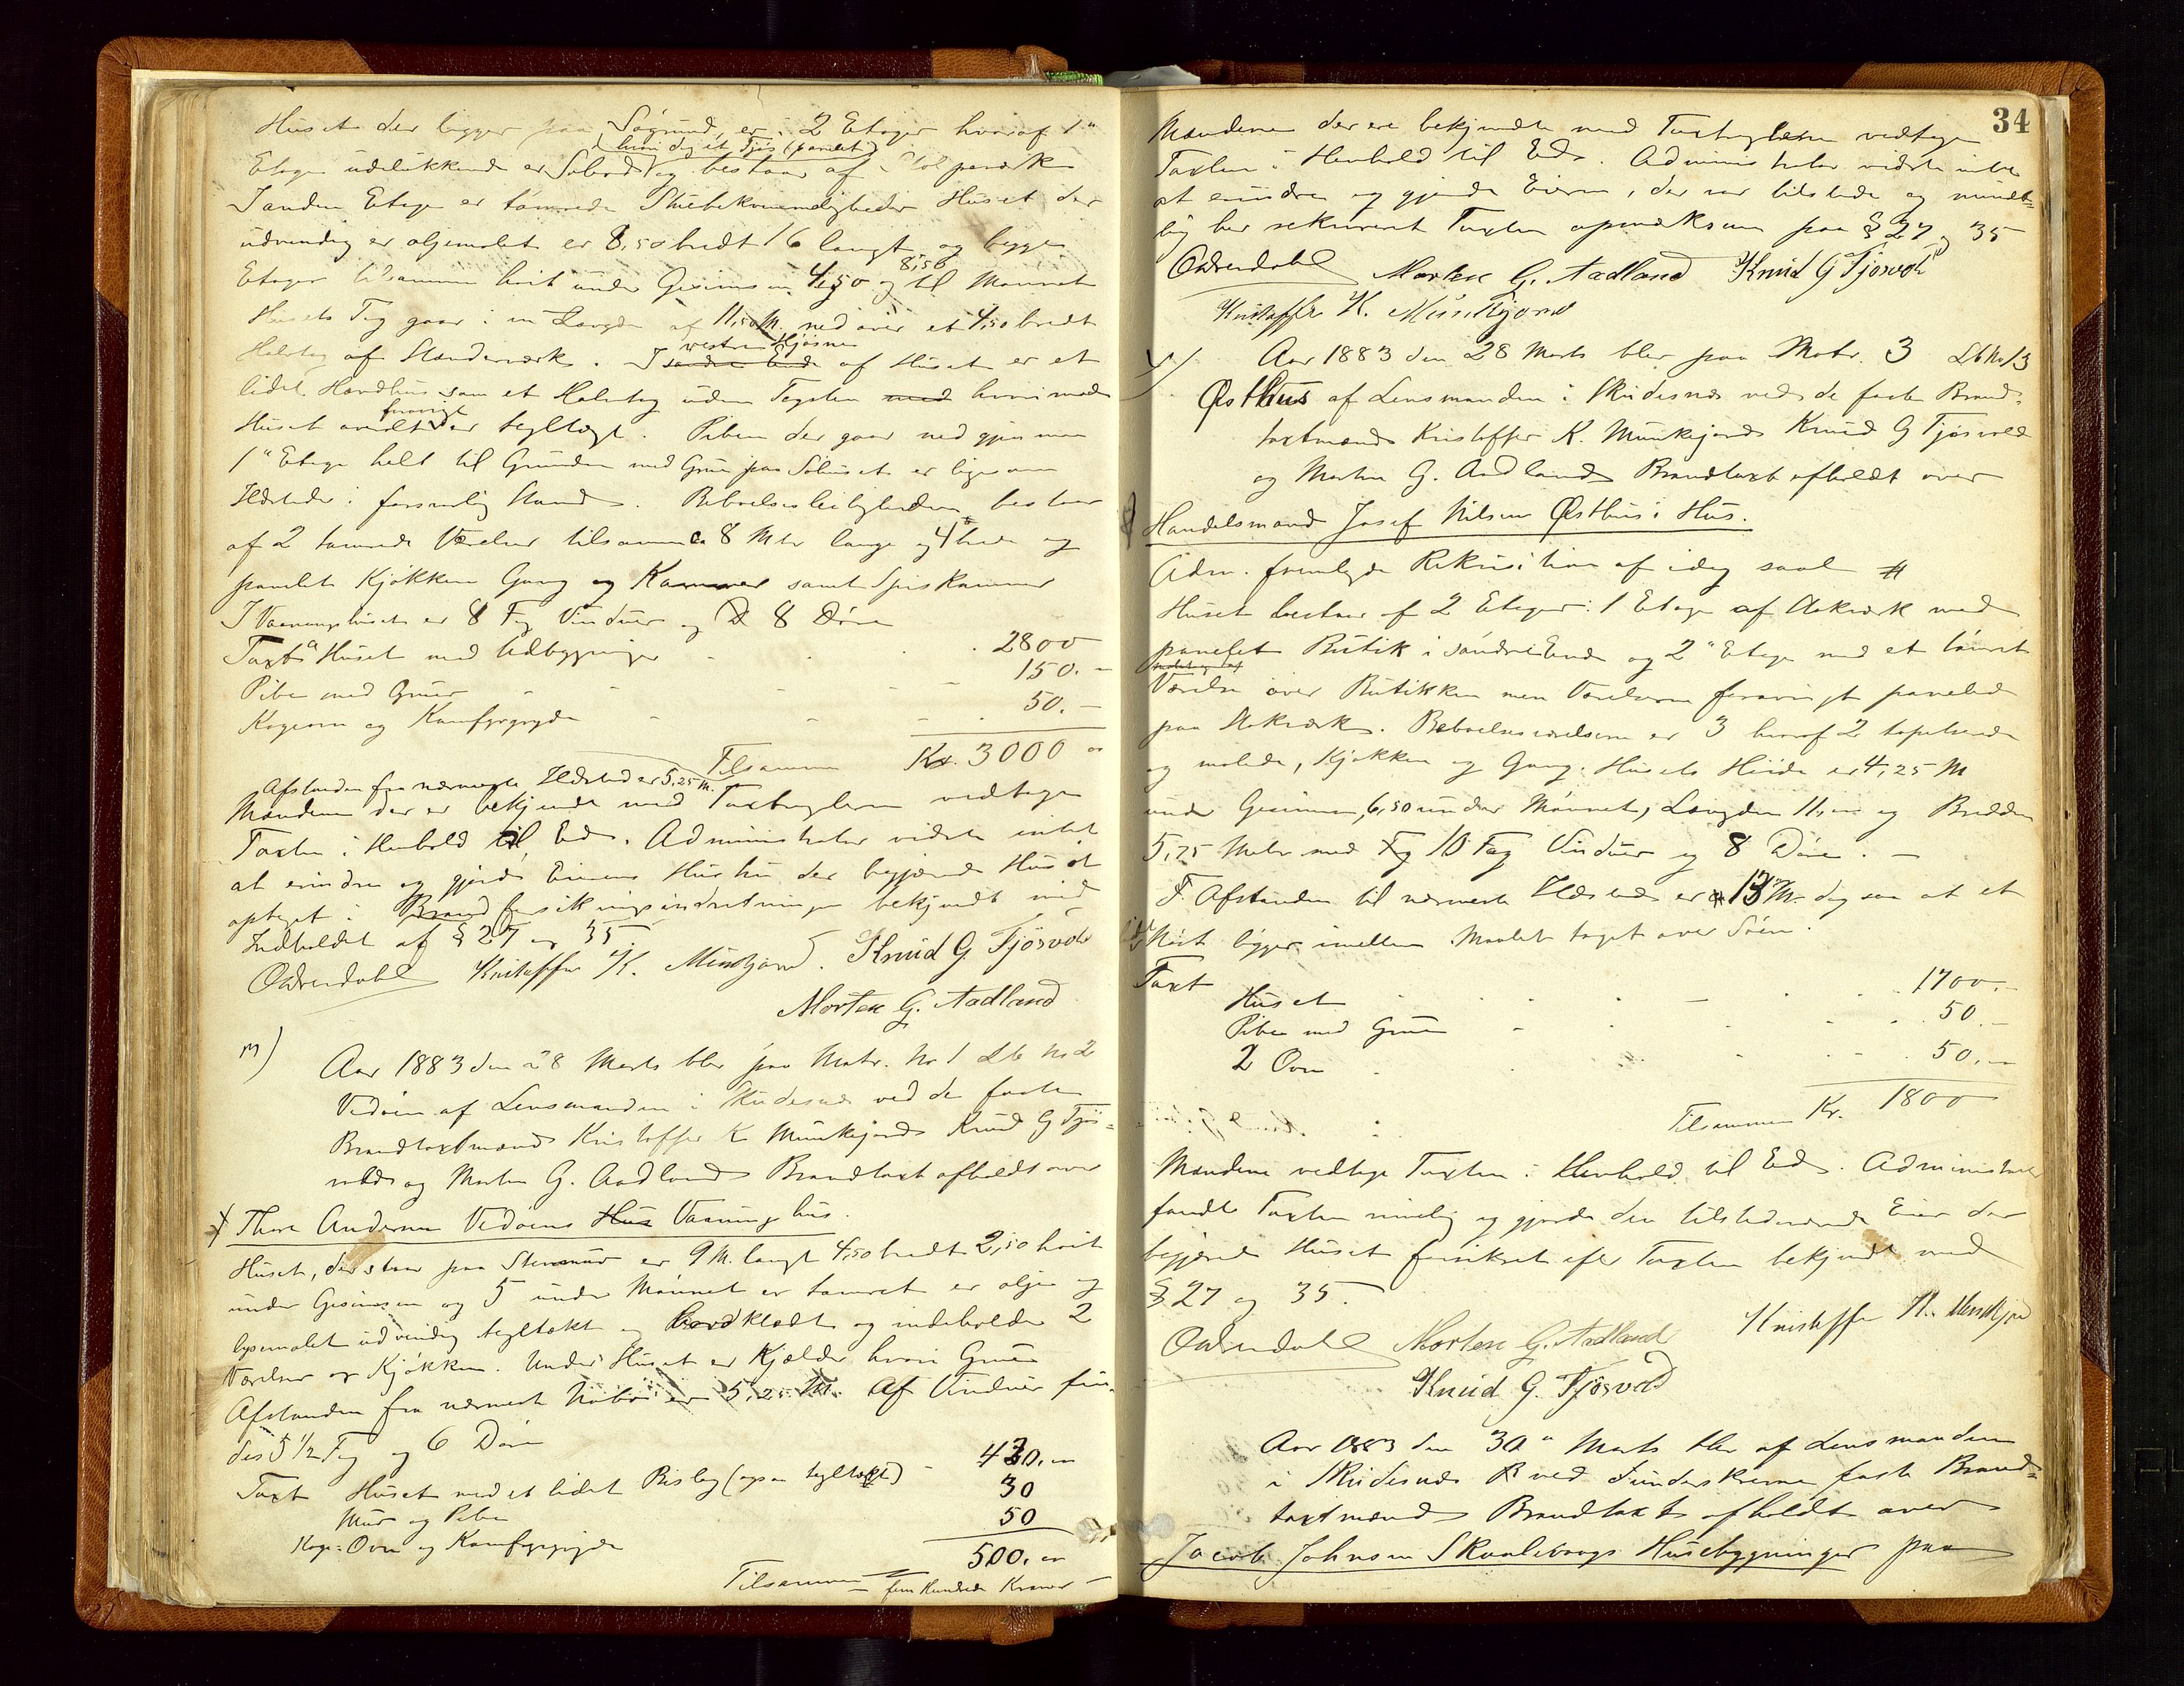 Huset der ligger paa Søgrund, er i 2 Etager hvoraf 1ste
hvori dog et Fjøs (panelet)
Etage udelukkende er Søbod og bestaar af Stolpeværk
I anden Etage er tømrede Stuebekvemmeligheder Huset der
udvendig er oljemalet er 8,50 bredt 16 langt og begge
8,50
Etager tilsammen høit under Gesimsen 4,50 og til Mønnet
Husets Tag gaar i en Længde af 11,50 M. ned over et 4,50 bredt
vestre Hjørne
Halvtag af Stenderværk. I søndre Ende af Huset er et
lidet Hordhus som et Halvtag uden Tegsten med hvorimod
forøvrigt
Huset ovalt er tegltægt. Piben der gaar ned gjennem
1ste Etage helt til Grunden med Grue paa Søhuset er ligesom
Ildsteder i forsvarlig Stand. Beboelsesleiligheden bestaar
af 2 tømrede Værelser tilsammen ca 8 Mtr lange og 4 brede og
panelet Kjøkken Gang og Kammer samt Spiskammer
I Vaaningshuset er 8 Fag Vinduer og 8 Døre
Taxt a Huset med Udbygninger 2800
Pibe med Grue 150.-
Kogeovn og Komfyrgryde 50.-
Tilsammen Kr. 3000
Afstanden fra nærmeste Ildsted er 5,25 M.
Mændene der er bekjendt med Taxtreglerne vedtage
Taxten i Henhold til Ed. Administrator vidste intet
at erindre og gjorde Eierens Hustru der begjærede Huset
optaget i Brandforsikringsindretningen bekjendt med
Indholdet af § 27 og 35
Kristoffer K. Munkjord. Knud G Tjøsvold
Morten G. Aadland
m)
Aar 1883 den 28 Marts blev paa Matr. No 1 Lb No 2
Vedøen af Lensmanden i Skudesnæs ved de faste
Brandtaxtmænd Kristoffer K Munkejord Knud G Tjøs-
vold og Morten G. Aadland Brandtaxt afholdt over
Thore Andersen Vedøens Hus Vaaningshus.
Huset, der staar paa Stenmur er 9 M. langt 4,50 bredt 2,50 høit
under Gesimsen og 5 under Mønnet er tømret er oljes og
lysemalet udvendig tegltækt og bordklædt og indeholder 2
Værelser og Kjøkken. Under Huset er Kjælder hvori Grue
Afstanden fra nærmeste Nabo er 5,25 M. Af Vinduer fin-
des 5 1/2 Fag og 6 Døre
Taxt Huset med et lidet Bislag (ogsaa tegltækt) 420.
Mur og Pibe 30
Koge-Ovn og Komfyrgryde 50
500.
Tilsammen fem Hundrede Kroner
34
Mændene der ere bekjendte med Taxtreglerne vedtage
Taxten i Henhold til Ed. Administrator vidste intet
at erindre og gjorde Eieren, der var tilstede og mundt-
lig har rekvireret Taxten opmærksom paa § 27 og 35
Morten G. Aadland Knud G Tjøsvold
Kristoffer K. Munkjord
Aar 1883 den 28 Marts blev paa Matr. 3 Lb No 13
Østhus af Lensmanden i Skudesnæs ved de faste Brand-
taxtmænd Kristoffer K. Munkejord Knud G Tjøsvold
og Morten G. Aadland Brandtaxt afholdt over
Handelsmand Josef Nilsen Østhus's Hus.
Adm. fremlagde Rekvisition af idag saal #
Huset bestaar af 2 Etager: 1 Etage af Stokværk med
panelet Butik i søndre Ende og 2den Etage med et tømret
Værelse over Butikken men Værelserne forøvrigt panelede
paa Stokværk. Beboelsesværelserne er 3 hvoraf 2 tapetserede
og malede, Kjøkken og Gang. Husets Høide er 4,25 M
under Gesimsen, 6,50 under Mønnet, Længden 11, og Bredden
5,25 Meter med 10 Fag Vinduer og 8 Døre. -
Afstanden til nærmeste Ildsted er 13 M. dog saa at et
lidet Nøst ligger imellem Maalet taget over Søen.
Taxt
Huset 1700.-
Pibe med Grue 50.-
2 Ovne 50.-
Tilsammen Kr. 1800
Mændene vedtage Taxten i Henhold til Ed. Administrator
fandt Taxten rimelig og gjorde den tilstedeværende Eier der
begjærede Huset forsikret efter Taxten bekjendt med
§ 27 og 35.
Morten G. Aadland Kristoffer K. Munkjord
Knud G. Tjøsvold
Aar 1883 den 30te Marts blev af Lensmanden
i Skudesnæs ved de underskrevne faste Brand-
taxtmænd Brandtaxt afholdt over
Jacob Johnsen Skaalevaags Husebygninger paa